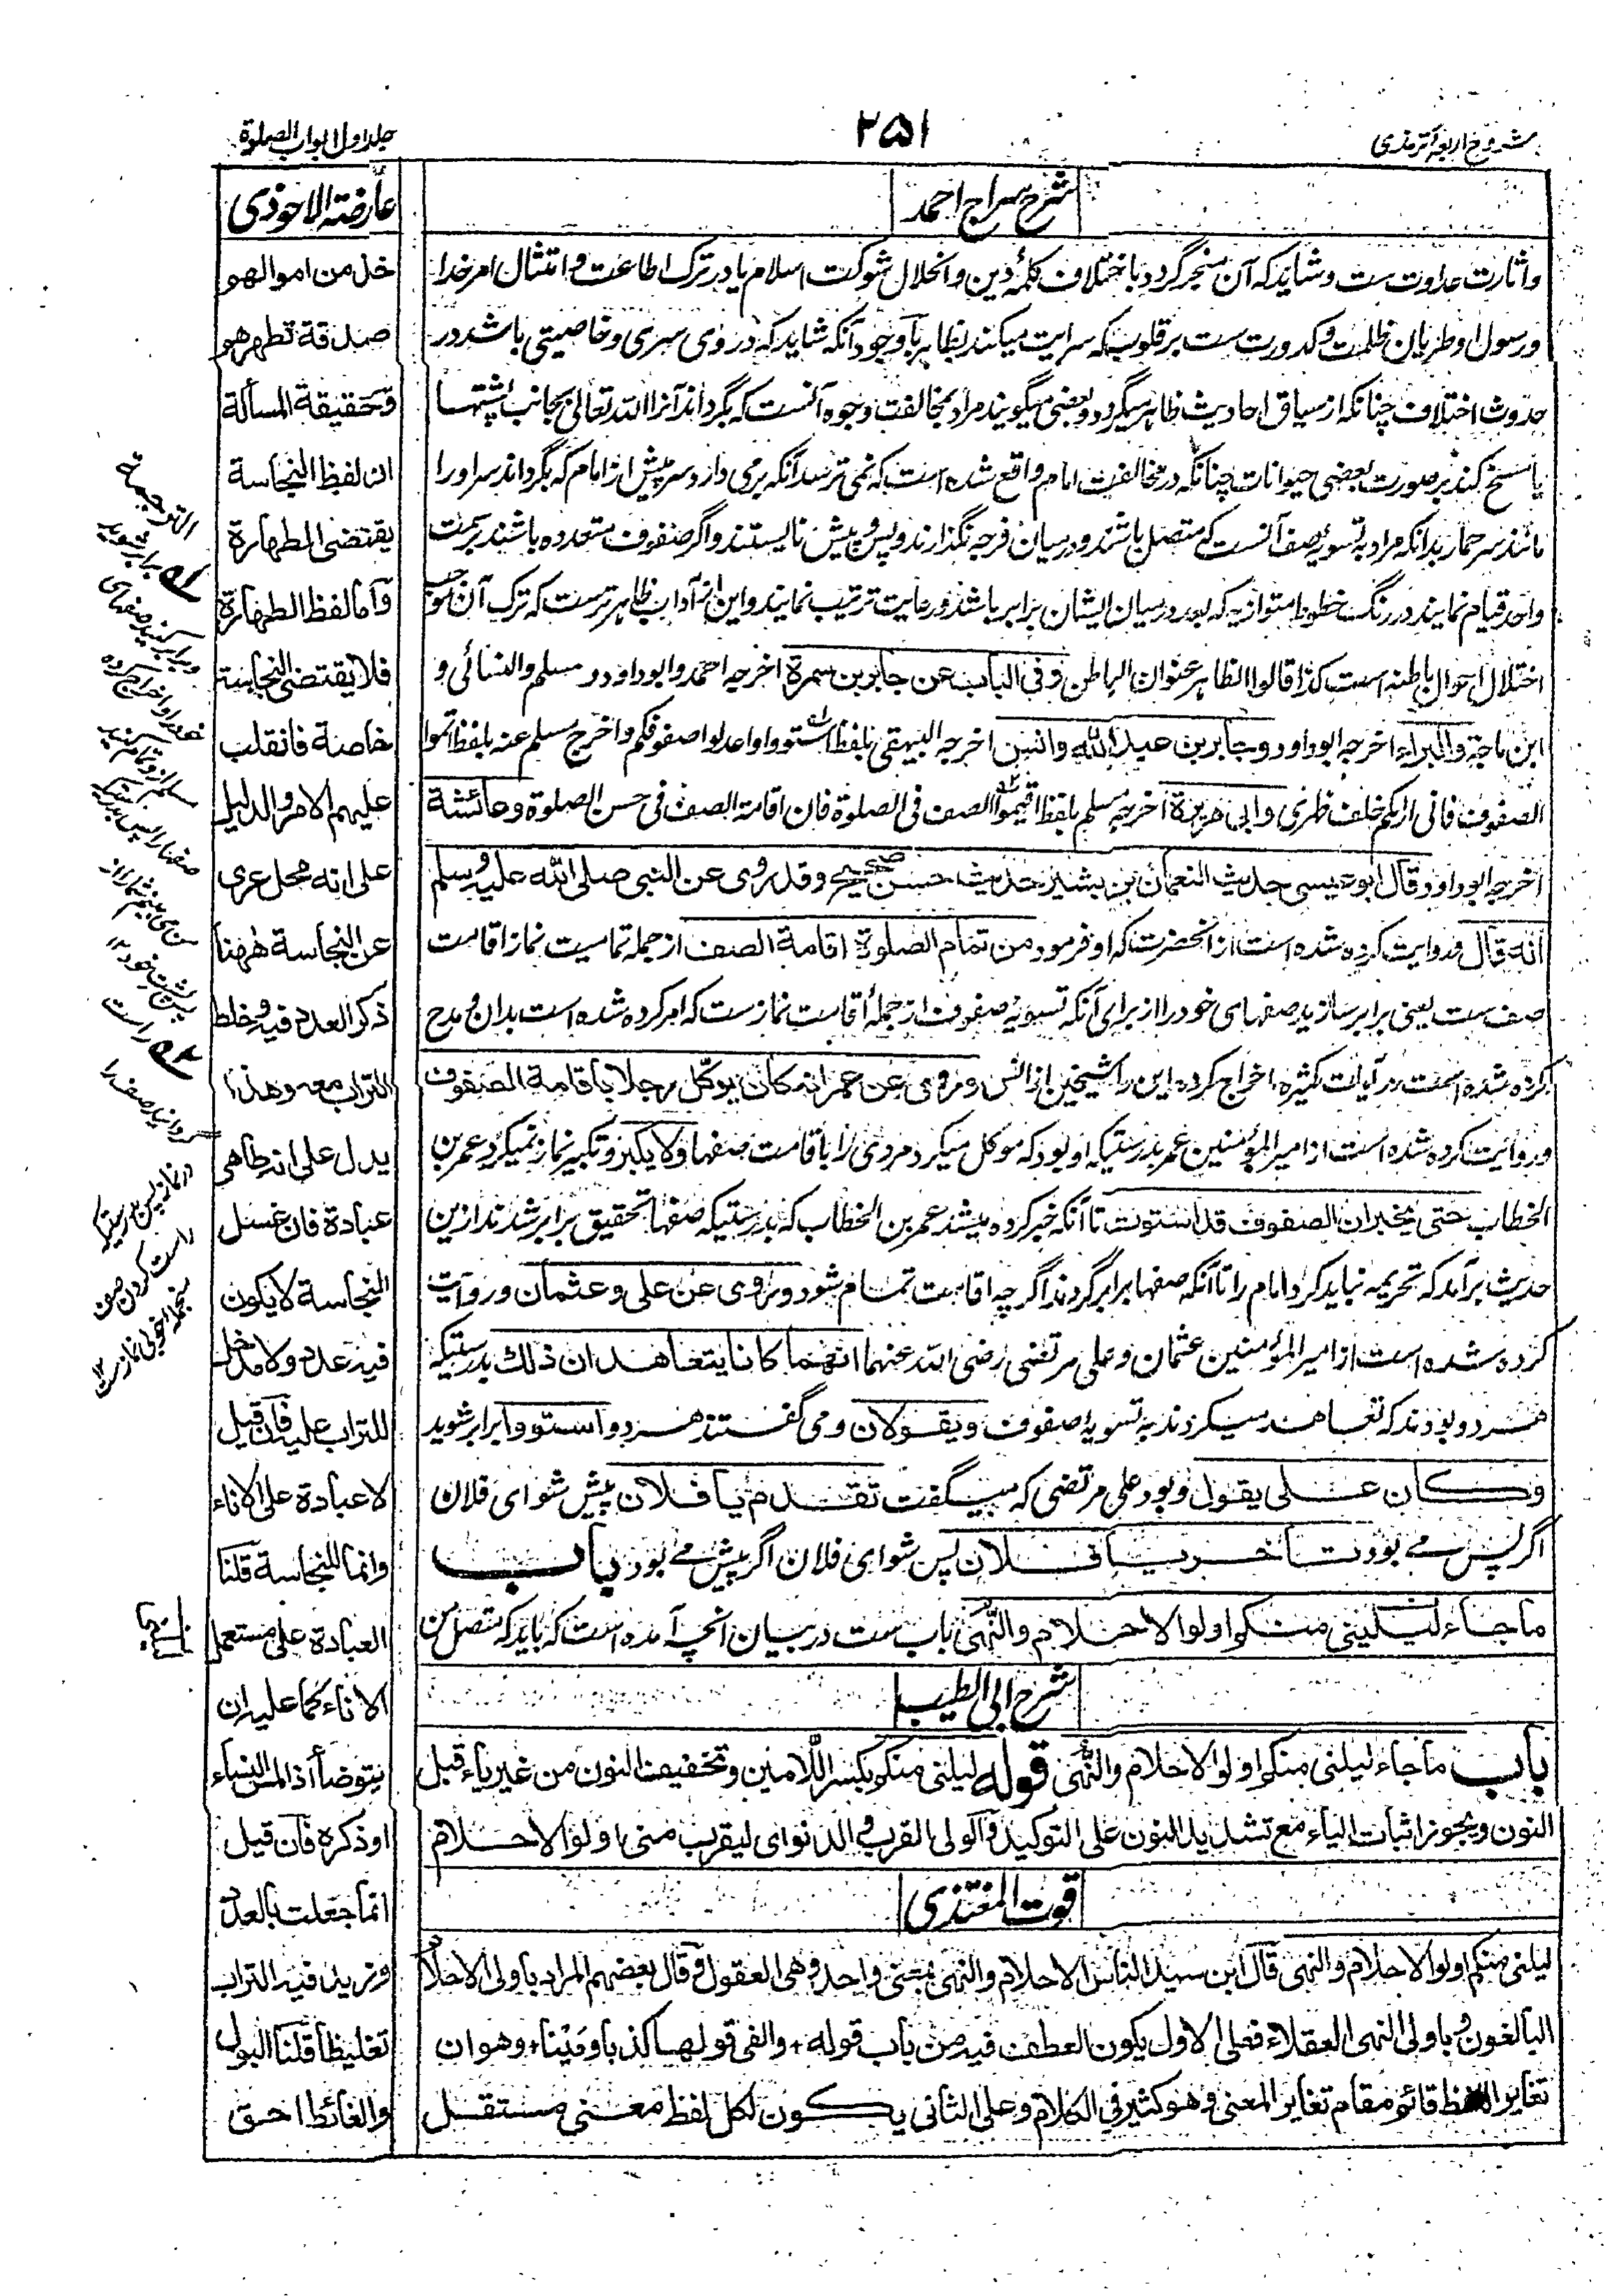 شروح اربعہ ترمذی
۲۵۱
جلد اول ابواب الصلوة
شرح سراج احمد
واثارت عداوت ست و شاید که آن منجر گردد باختلاف کلمهٔ دین وانحلال شوکت اسلام یا در ترک اطاعت و امتثال امر خدا
ورسول او طریان ظلمت و کدورت ست بر قلوب که سرایت میکند بظاهر باوجود آنکه شاید که در وی سری و خاصیتی باشد در
حدوث اختلاف چنانکه از سیاق احادیث ظاهر میگردد و بعضی میگویند مراد بمخالفت وجوه آنست که بگرداند آنرا الله تعالی بجانب پشتها
یا مسخ کند بر صورت بعضی حیوانات چنانکه در مخالفت امام واقع شده است که نمی ترسد آنکه برمی دارد سر پیش از امام که بگرداند سر اورا
مانند سر حمار بدانکه مراد به تسویه صف آنست که متصل باشند و درمیان فرجه نگذارند و پس و پیش نایستند و اگر صفوف متعدده باشند برسمت
واحد قیام نمایند در رنگ خطوط متوازیه که بعد درمیان ایشان برابر باشد و رعایت ترتیب نمایند و این از آداب ظاهرست که ترک آن موجب
اختلال احوال باطنه است کذا قالوا الظاهر عنوان الباطن وفی الباب عن جابر بن سمرة اخرجه احمد وابوداود و مسلم والنسائی و
ابن ماجة والبراء اخرجه ابوداود وجابر بن عبد الله وانس اخرجه البیهقی بلفظ استووا واعدلوا صفوفکم واخرج مسلم عنه بلفظ اتموا
الصفوف فانی اراکم خلف ظهری وابی هریرة اخرجه مسلم بلفظ اقیموا الصف فی الصلوة فان اقامة الصف فی حسن الصلوة وعائشة
اخرجه ابوداود قال ابوعیسی حدیث النعمان بن بشیر حدیث حسن صحیح وقد روی عن النبی صلی الله علیه وسلم
انه قال و روایت کرده شده است از آنحضرت که او فرمود من تمام الصلوة اقامة الصف از جمله تمامیت نماز اقامت
صف ست یعنی برابر سازید صفهای خود را از برای آنکه تسویهٔ صفوف از جملهٔ اقامت نمازست که امر کرده شده است بدان و مدح
کرده شده است در آیات کثیره اخراج کرده این را شیخین از انس وروی عن عمر انه کان یوکل رجلا باقامة الصفوف
و روایت کرده شده است از امیر المؤمنین عمر بدرستیکه او بود که موکل میکرد مردی را باقامت صفها ولا یکبر و تکبیر نماز نمیکرد عمر بن
الخطاب حتی یخبر ان الصفوف قد استوت تا آنکه خبر کرده میشد عمر بن الخطاب که بدرستیکه صفها بتحقیق برابر شدند ازین
حدیث برآمد که تحریمه نباید کرد امام را تا آنکه صفها برابر گردند اگرچه اقامت تمام شود وروی عن علی وعثمان و روایت
کرده شده است از امیر المؤمنین عثمان و علی مرتضی رضی الله عنهما انهما کانا یتعاهدان ذلك بدرستیکه
هردو بودند که تعاهد میکردند به تسویه صفوف ویقولان و می گفتند هردو استووا برابر شوید
وکان علی یقول و بود علی مرتضی که میگفت تقدم یا فلان پیش شو ای فلان
اگر پس می بود تاخر یا فلان پس شو ای فلان اگر پیش می بود باب
ما جاء لیلینی منکم اولوا الاحلام والنهی باب ست در بیان آنچه آمده است که باید که متصل من
شرح ابی الطیب
باب ما جاء لیلنی منکم اولوا الاحلام والنهی قوله لیلنی منکم بکسر اللامین وتخفیف النون من غیر یاء قبل
النون ویجوز اثبات الیاء مع تشدید النون علی التوکید والولی القرب والدنو ای لیقرب منی اولوا الاحلام
قوت المغتذی
لیلنی منکم اولوا الاحلام والنهی قال ابن سید الناس الاحلام والنهی بمعنی واحد وهی العقول وقال بعضهم المراد باولی الاحلام
البالغون وباولی النهی العقلاء فعلی الاول یکون العطف فیه من باب قوله + والفی قولها کذبا ومینا + وهو ان
تغایر اللفظ قائم مقام تغایر المعنی وهو کثیر فی الکلام وعلی الثانی یکون لکل لفظ معنی مستقل
عارضة الاحوذی
خذ من اموالهم
صدقة تطهرهم
وحقیقة المسألة
ان لفظ النجاسة
یقتضی الطهارة
وأما لفظ الطهارة
فلا یقتضی النجاسة
خاصة فانقلب
علیهم الامر والدلیل
علی انه محل عری
عن النجاسة ههنا
ذکر العدد فیه وخلط
التراب معه وهذا
یدل علی انه طاهر
عبادة فان غسل
النجاسة لا یکون
فیه عدد ولا مدخل
للتراب علیه فان قیل
لا عبادة علی الاناء
وانما للنجاسة قلنا
العبادة علی مستعمل
الاناء کما علیه ان
یتوضأ اذا لمس النساء
او ذکره فان قیل
انما جعلت بالعدد
وزید فیه التراب
تغلیظا قلنا البول
والغائط احق
الترجمة
برابر شوید
وبرابر کنید صفهای
خود را و اخراج کرده
مسلم از و تمام کنید
صفها را پس بدرستیکه
من می بینم شمارا از
پس پشت خود ۱۲
راست
گردانید صف را
در نماز پس بدرستیکه
راست کردن صف
منجمله خوبی نماز ست ۱۲